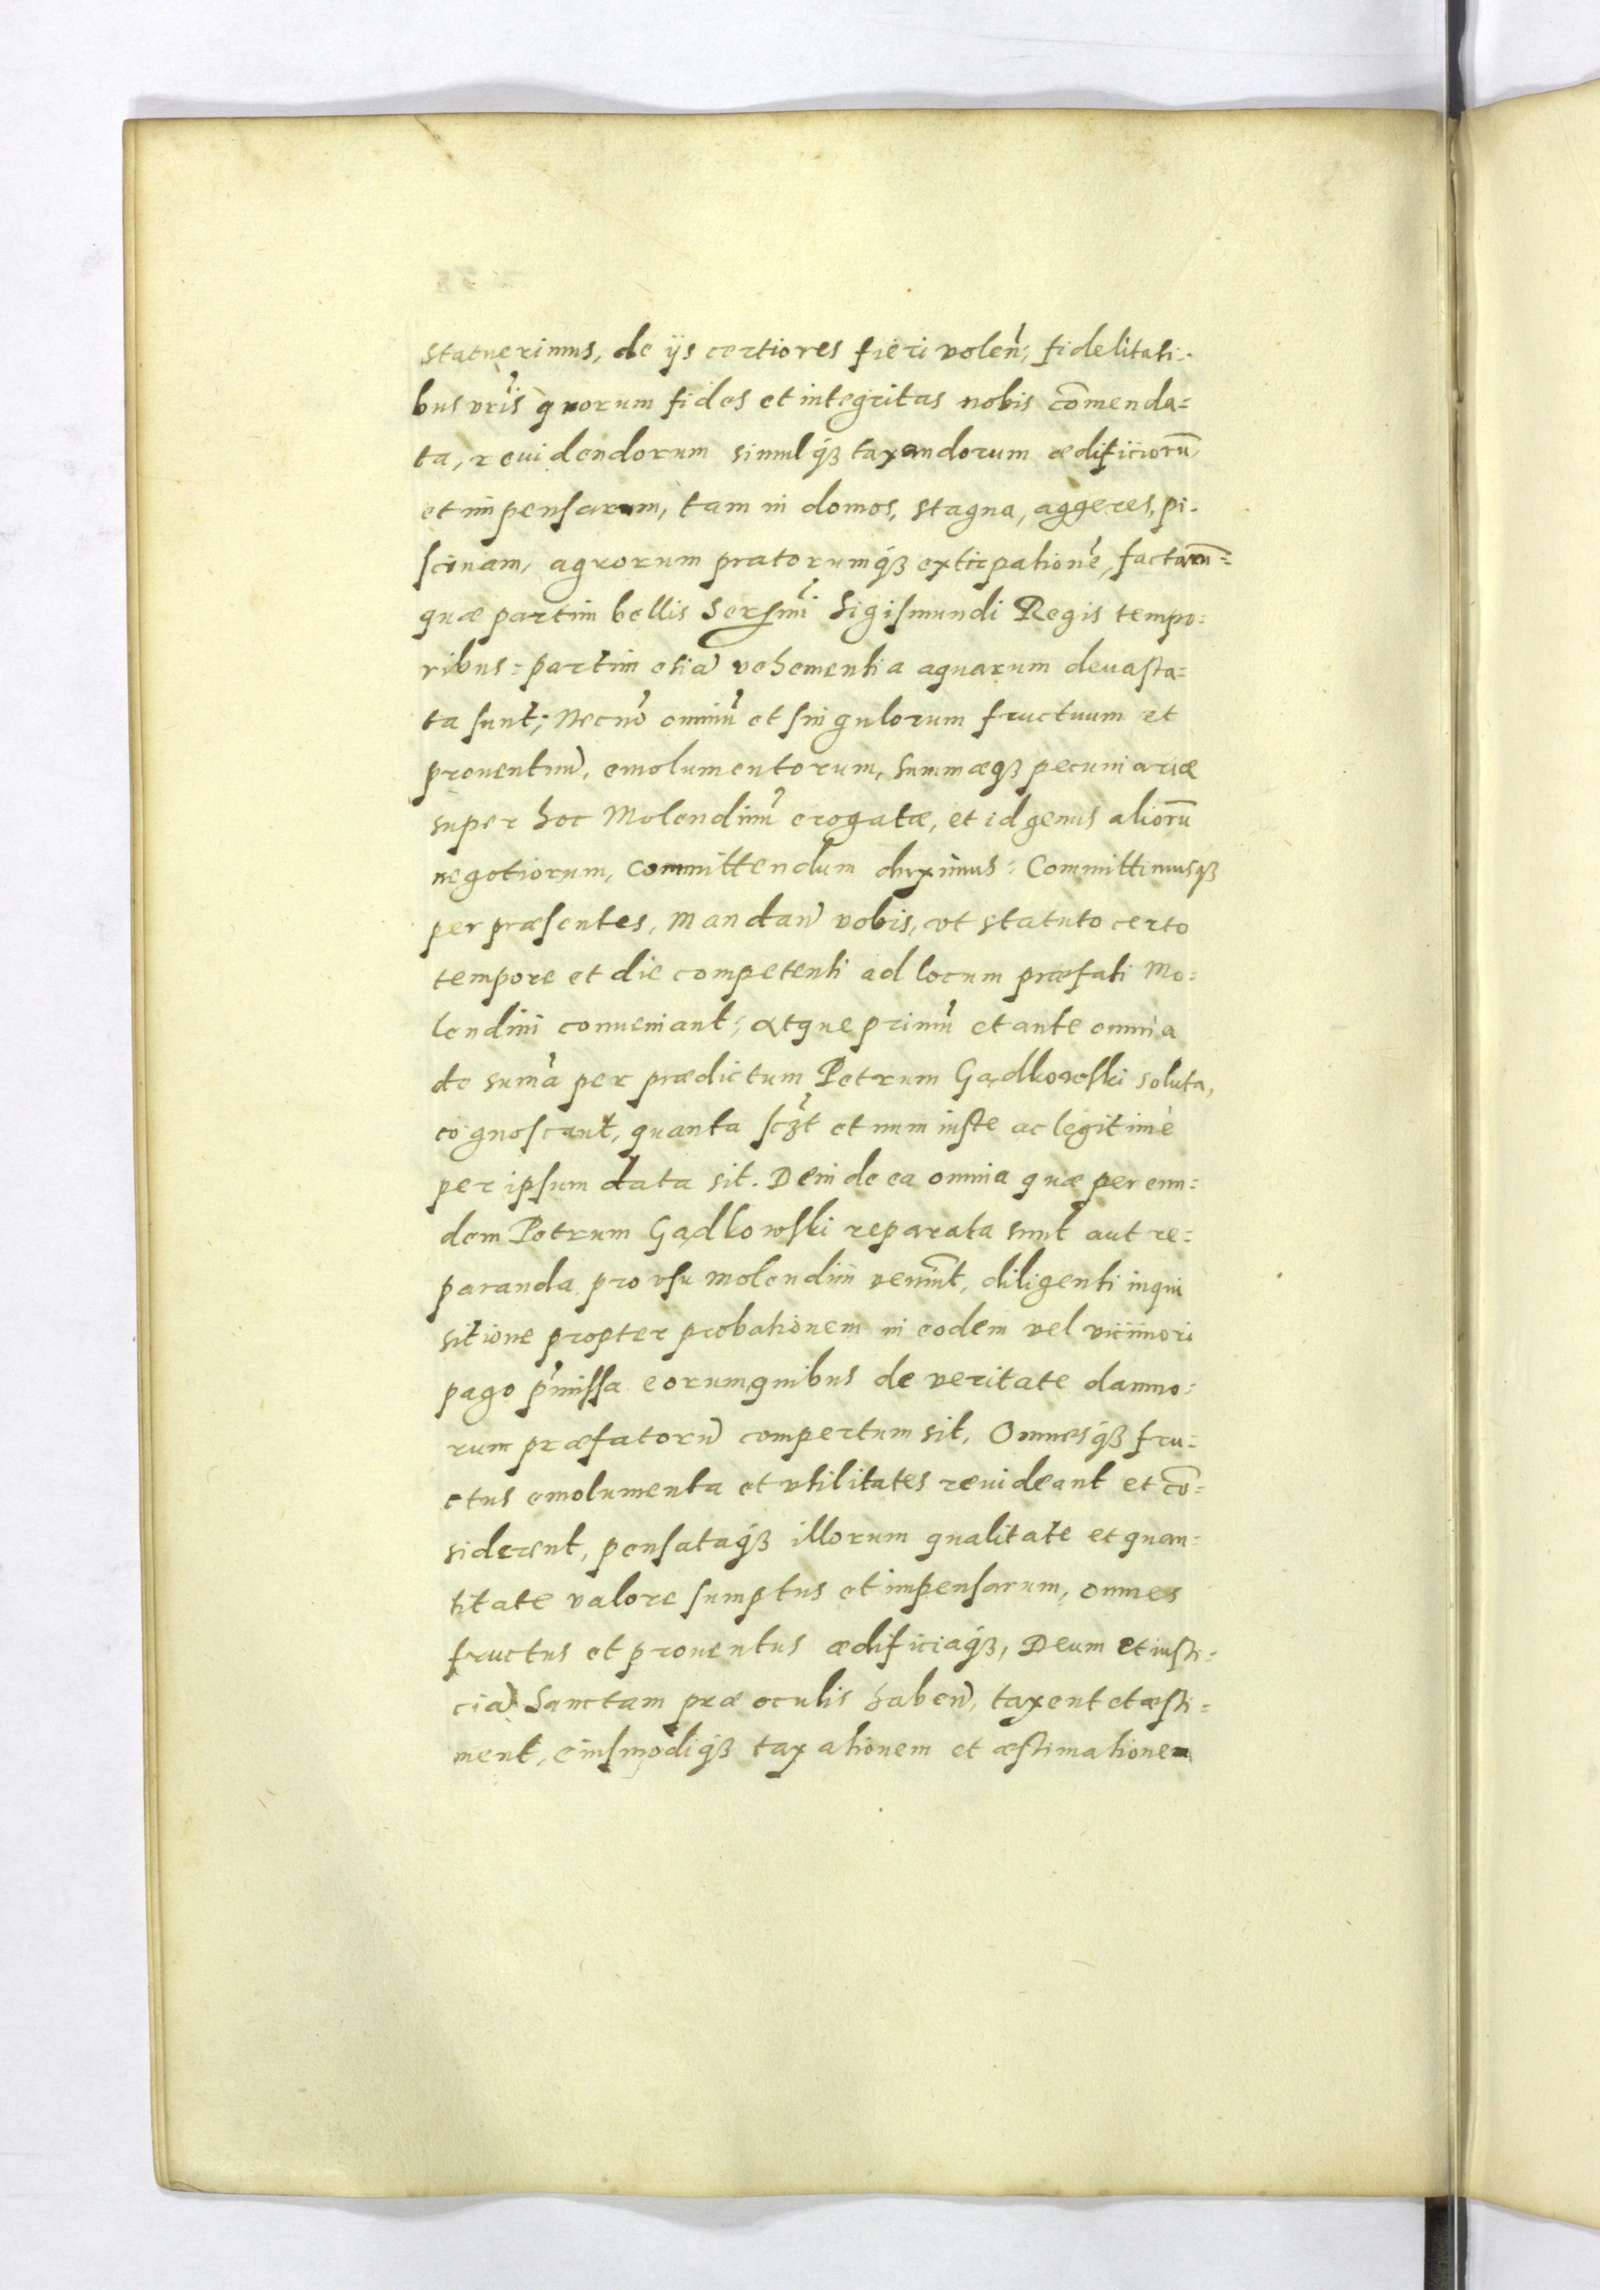 statuerimus, de ijs certiores fieri volen̄; fidelitati-
bus vrīs quorum fides et integritas nobis com̄enda=
ta, reuidendorum simulq́ꝫ taxandorum ædificiorū
et impensarum, tam in domos, stagna, aggeres, pi-
scinam, agrorum pratorumq́ꝫ extirpationē, factarū=
quæ partim bellis Serſmi Sigismundi Regis tempo=
ribus: partim etiā vehementia aquarum deuasta=
ta sunt; Necnō omniū et singulorum fructuum et
prouentuū, emolumentorum, summæqꝫ pecuniariæ
super hoc Molendinū erogatæ, et id genus aliorū
negotiorum, committendum duximus: Committimusqꝫ
per præsentes, mandan̄ vobis, vt statuto certo
tempore et die competenti ad locum præfati Mo=
lendini conueniant; atque primū et ante omnia
de sum̄a per prædictum Petrum Gądkowski soluta,
cognoscant, quanta scꝫt et num iuste ac legitimè
per ipsum data sit. Deinde ea omnia quæ per eun=
dem Petrum Gądkowski reparata sunt aut re=
paranda pro vsu molendini veniūt, diligenti inqui
sitione propter probationem in eodem vel viciniori
pago p̄missa eorum, quibus de veritate damno=
rum præfatorū compertum sit, Omnesq́ꝫ fru=
ctus emolumenta et vtilitates reuideant et cō=
siderent, pensataq́ꝫ illorum qualitate et quan=
titate valore sumptus et impensarum, omnes
fructus et prouentus ædificiaq́ꝫ, Deum et iusti=
ciā Sanctam præ oculis haben̄, taxent et æsti=
ment, eiusmodiq́ꝫ taxationem et æstimationem